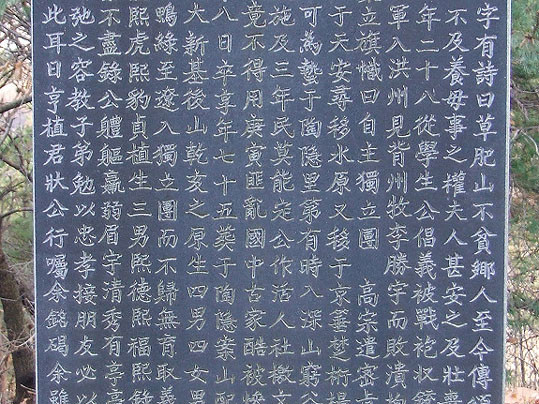 字有詩曰草肥山不貧鄉人至今傳
不及養毋事之權夫人甚安之及壯
年二十八從學生公倡義被戰袍収
軍入洪州見背州牧李勝宇而敗潰
立旗幟曰自主獨立團 高宗遣密
于天安尋移水原又移于京華楚術
可為蓺于陶隐里第有時入深山窮
施及三年民莫能定公作活人社檄
竟不得用庚寅匪亂國中古家酷被
八日卒享年七十五葬于陶隐案山
大新基後山乾亥之原生四男四女
鴨綠至遼入獨立團而不歸無育取
熙虎熙豹貞植生三男熙德熙福熙
不盡錄公軆軀羸弱眉宇清秀有亭
弛之容教子弟勉以忠孝接朋友必以
此耳日亨植君狀公行囑余銘碣余